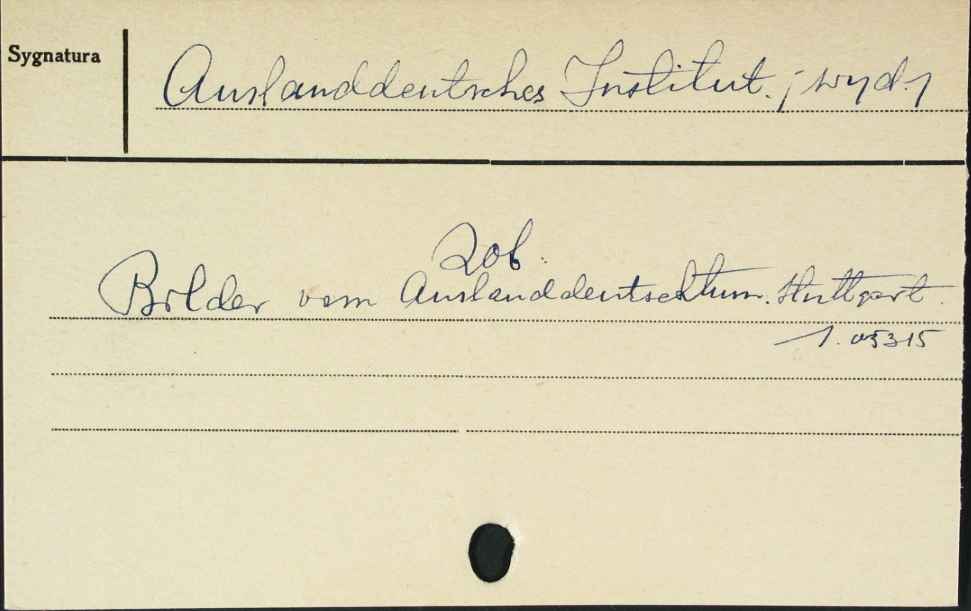 Sygnatura
Auslanddeutsches Institut. /wyd./
Zob.
Bilder vom Auslanddeutschtum. Stuttgart.
1.05315